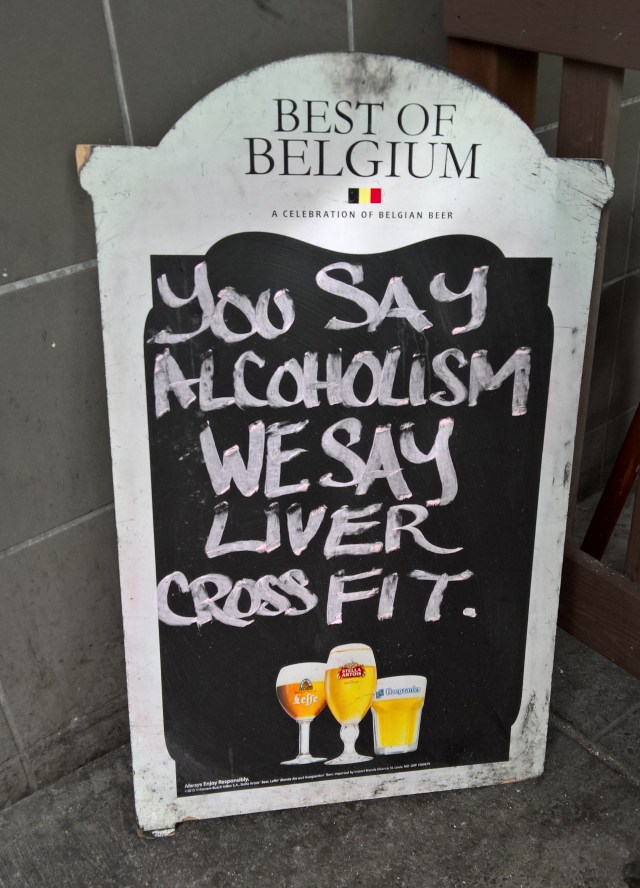 BEST OF
BELGIUM
A CELEBRATION OF BELGIAN BEER
YOU SAY
ALCOHOLISM
WE SAY
LIVER
CROSS FIT.
Leffe
STELLA
ARTOIS
Hoegaarden
Always Enjoy Responsibly.